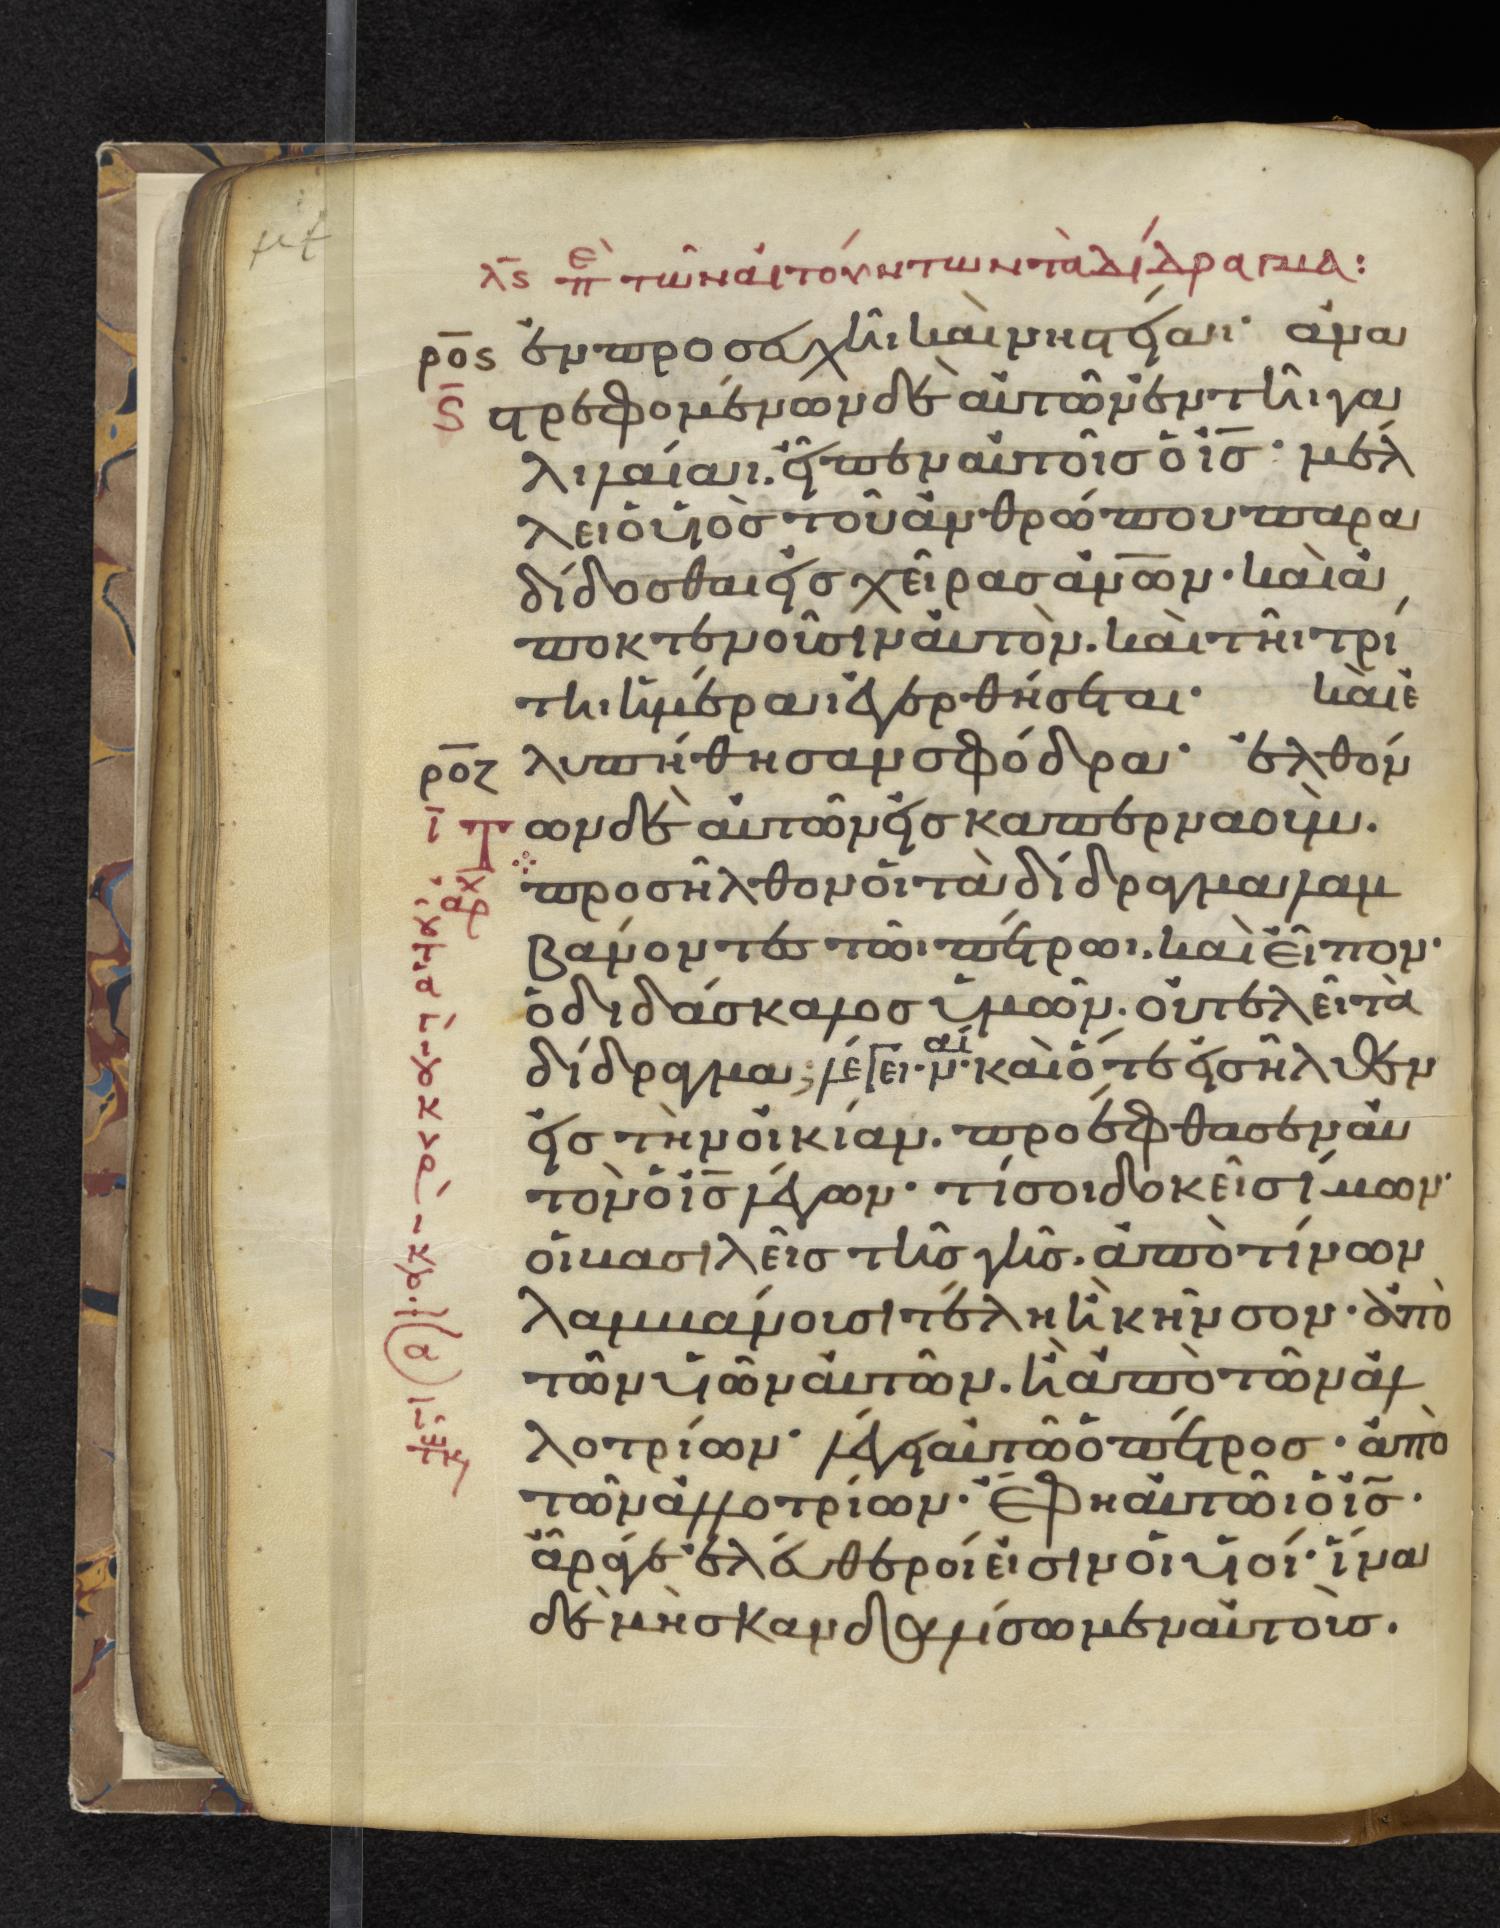 λϛ ἐπ τῶν αἰτούντων τὰ δίδραγμα:
ρος ἐν προσευχῆι καὶ νηστείαι· ἀνα
ϛ στρεφομένων δὲ αὐτῶν ἐν τῆι γα
λιλαίαι. εἶπεν αὐτοῖς ὁ ἰς· μέλ
λει ὁ υἱὸς τοῦ ἀνθρώπου παρα
δίδοσθαι εἰς χεῖρας ἀνων· καὶ ἀ
ποκτενοῦσιν αὐτὸν. καὶ τῆι τρί
τηι ἡμέραι ἐγερθήσεται· καὶ ἐ
ροζ λυπήθησαν σφόδρα· ἐλθόν
ι των δὲ αὐτῶν εἰς καπερναοὺμ.
αρχ προσῆλθον οἱ τὰ δίδραγμα λαμ
βάνοντες τῶι πέτρωι. καὶ εἶπον·
ὁ διδάσκαλος ὑμῶν. οὐ τελεῖ τὰ
δίδραγμα; λέγει· ναί· καὶ ὅτε εἰσῆλθεν
εἰς τὴν οἰκίαν. προέφθασεν αὐ
τὸν ὁ ἰς λέγων· τί σοι δοκεῖ σίμων·
οἱ βασιλεῖς τῆς γῆς. ἀπὸ τίνων
λαμβάνουσι τέλη ἢ κῆνσον· ἀπὸ
τῶν υἱῶν αὐτῶν. ἢ ἀπὸ τῶν ἀλ
λοτρίων· λέγει αὐτῶ ὁ πέτρος· ἀπὸ
τῶν ἀλλοτρίων· ἔφη αὐτῶι ὁ ἰς·
ἄρα γε ἐλεύθεροί εἰσιν οἱ υἱοί· ἵνα
δὲ μὴ σκανδαλίσωμεν αὐτοὺς.